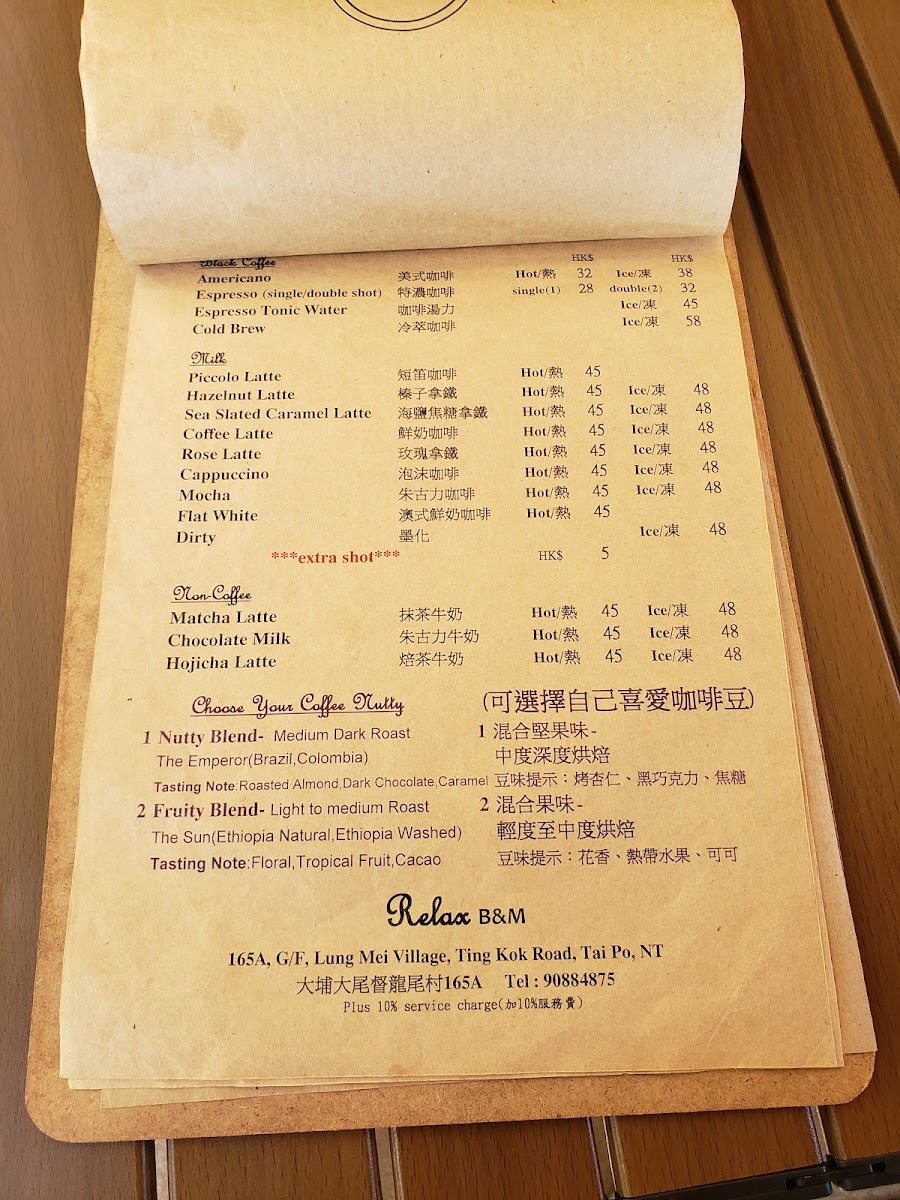 Black Coffee HK$ HK$
Americano 美式咖啡 Hot/熱 32 Ice/凍 38
Espresso (single/double shot) 特濃咖啡 single(1) 28 double(2) 32
Espresso Tonic Water 咖啡湯力 Ice/凍 45
Cold Brew 冷萃咖啡 Ice/凍 58
Milk
Piccolo Latte 短笛咖啡 Hot/熱 45
Hazelnut Latte 榛子拿鐵 Hot/熱 45 Ice/凍 48
Sea Slated Caramel Latte 海鹽焦糖拿鐵 Hot/熱 45 Ice/凍 48
Coffee Latte 鮮奶咖啡 Hot/熱 45 Ice/凍 48
Rose Latte 玫瑰拿鐵 Hot/熱 45 Ice/凍 48
Cappuccino 泡沫咖啡 Hot/熱 45 Ice/凍 48
Mocha 朱古力咖啡 Hot/熱 45 Ice/凍 48
Flat White 澳式鮮奶咖啡 Hot/熱 45
Dirty 墨化 Ice/凍 48
***extra shot*** HK$ 5
Non-Coffee
Matcha Latte 抹茶牛奶 Hot/熱 45 Ice/凍 48
Chocolate Milk 朱古力牛奶 Hot/熱 45 Ice/凍 48
Hojicha Latte 焙茶牛奶 Hot/熱 45 Ice/凍 48
Choose Your Coffee Nutty (可選擇自己喜愛咖啡豆)
1 Nutty Blend- Medium Dark Roast 1 混合堅果味-
The Emperor(Brazil,Colombia) 中度深度烘焙
Tasting Note:Roasted Almond,Dark Chocolate,Caramel 豆味提示：烤杏仁、黑巧克力、焦糖
2 Fruity Blend- Light to medium Roast 2 混合果味-
The Sun(Ethiopia Natural,Ethiopia Washed) 輕度至中度烘焙
Tasting Note:Floral,Tropical Fruit,Cacao 豆味提示：花香、熱帶水果、可可
Relax B&M
165A, G/F, Lung Mei Village, Ting Kok Road, Tai Po, NT
大埔大尾督龍尾村165A Tel : 90884875
Plus 10% service charge(加10%服務費)